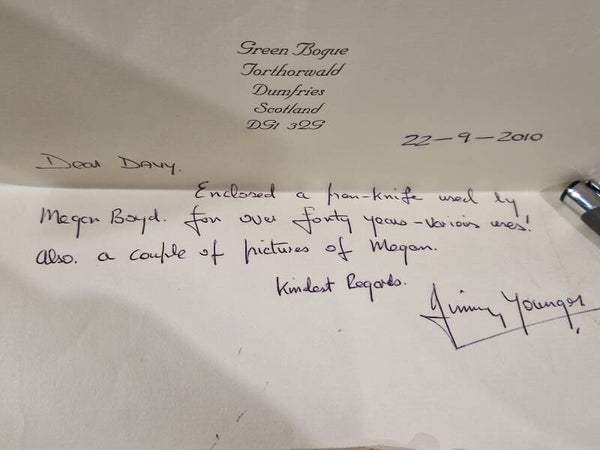 Green Bogue
Torthorwald
Dumfries
Scotland
DG1 3QG
22-9-2010
Dear Davy.
Enclosed a pen-knife used by
Megan Boyd. for over forty years - various uses!
Also. a couple of pictures of Megan.
Kindest Regards.
Jimmy Younger